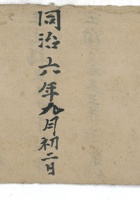 同治六年九月初二日